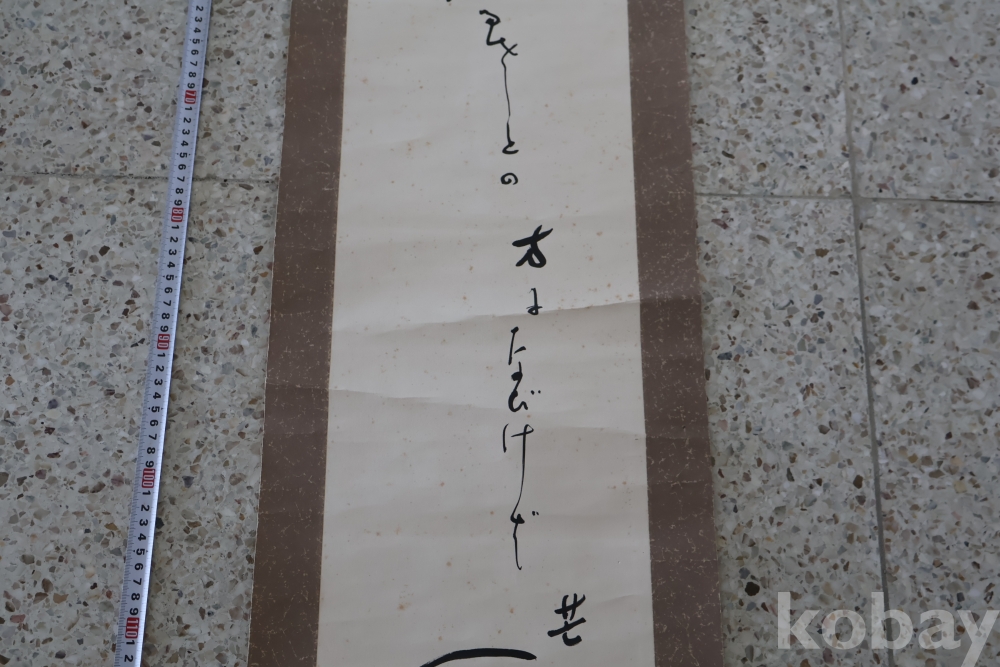 2 3 4 5 6 7 8 9 70 1 2 3 4 5 6 7 8 9 80 1 2 3 4 5 6 7 8 9 90 1 2 3 4 5 6 7 8 9 100 1 2 3 4 5 6 7 8 9 110 1 2
との方になびけば
芒
kobay